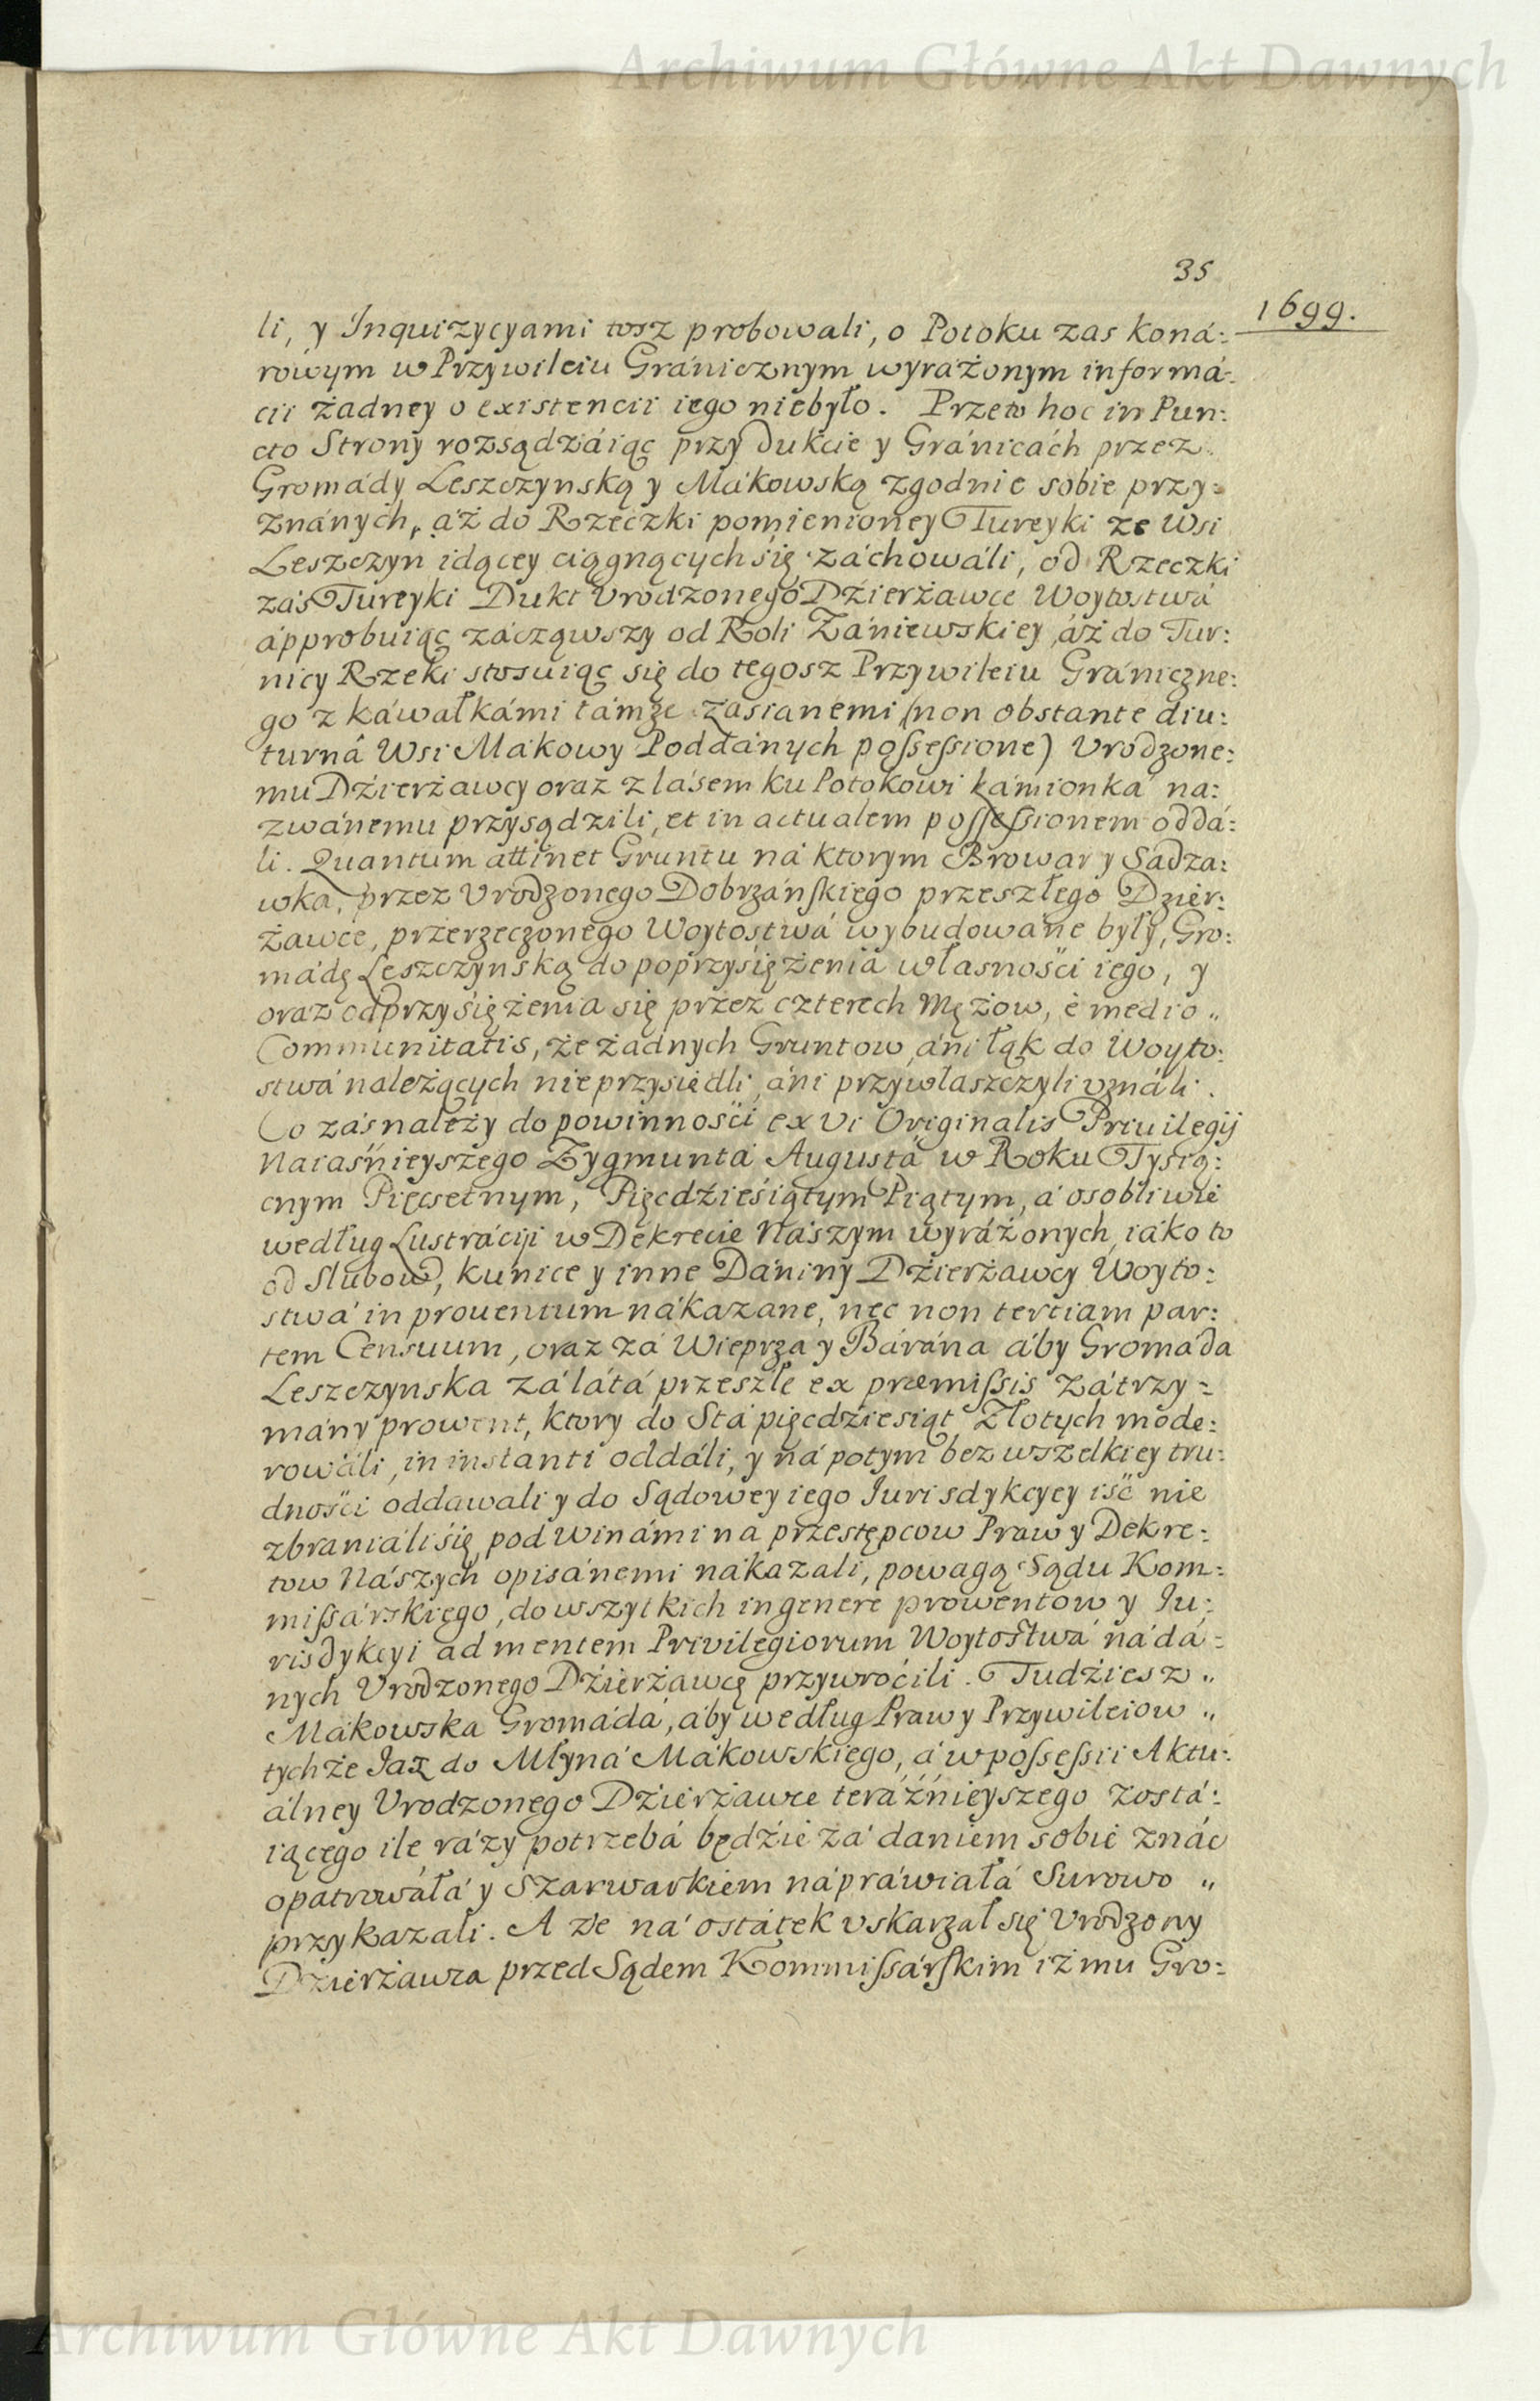 Archiwum Główne Akt Dawnych
35
1699.
li, y Inquizycyami tosz probowali, o Potoku zas koná:
rowym w Przywileiu Gránicznym wyrażonym informá:
cii żadney o existencii iego niebyło. Przeto hoc in Pun:
cto Strony rozsądzáiąc przy dukcie y Gránicách przez
Gromády Leszczynską y Mákowską zgodnie sobie przy:
znánych, áż do Rzeczki pomienioney Tureyki ze Wsi
Leszczyn idącey ciągnących się záchowáli, od Rzeczki
zás Tureyki Dukt Vrodzonego Dźierżawce Woytostwá
ápprobuiąc zácząwszy od Roli Zániewskiey áż do Tur:
nicy Rzeki stosuiąc się do tegosz Przywileiu Gránicznе:
go z káwałkámi támże zasianemi (non obstante diu:
turná Wsi Mákowy Poddánych poſseſsione) Vrodzone:
mu Dźierżawcy oraz z lásem ku Potokowi kámionka na:
zwánemu przysądzili, et in actualem poſseſsionem oddá:
li. Quantum attinet Gruntu ná ktorym Browar y Sadza:
wka, przez Vrodzonego Dobrzáńſkiego przeszłego Dzier:
żawce, przerzeczonego Woytostwá wybudowane były, Gro:
mádę Leszczynską do poprzysiężenia własnośći iego, y
oraz odprzysiężenia się przez czterech Mężow, è medio „
Communitatis, że żadnych Gruntow áni łąk do Woyto:
stwá należących nieprzysiedli, áni przywłaszczyli vználi.
Co zás należy do powinnośći ex vi Originalis Priuilegij
Naiaśnieyszego Zygmuntá Augustá w Roku Tysią:
cnym Pięcsetnym, Pięcdźieśiątym Piątym, á osobliwie
według Lustráciji w Dekrecie Nászym wyráżonych, iáko to
od Slubow, kunice y inne Dániny Dźierżawcy Woyto:
stwá in prouentum nákazane, nec non tertiam par:
tem Censuum, oraz zá Wieprza y Bárána áby Gromáda
Leszczynska zá látá przeszłe ex præmiſsis zátrzy:
mány prowent, ktory do Stá pięcdźiesiąt Złotych mode:
rowáli, in instanti oddáli, y ná potym bez wszelkiey tru:
dnośći oddawali y do Sądowey iego Jurisdykcyey iść nie
zbraniáli się, pod winámi na przestępcow Praw y Dekre:
tow Nászych opisánemi nákazali, powagą Sądu Kom:
miſsárskiego, do wszytkich in genere prowentow y Ju:
risdykcyi ad mentem Privilegiorum Woytostwá nádá:
nych Vrodzonego Dźierżawcę przywroćili. Tudźiesz „
Mákowska Gromádá, áby według Praw y Przywileiow „
tychże Jaz do Młyná Mákowskiego, á w poſseſsii Aktu:
álney Vrodzonego Dźierżawce teráźnieyszego zostá:
iącego ile rázy potrzebá będźie zá daniem sobie znác
opatrowáłá y Szarwarkiem nápráwiałá Surowo „
przykazali. A że ná ostátek vskarżał się Vrodzony
Dzierżawca przed Sądem Kommiſsárſkim iż mu Gro:
Archiwum Główne Akt Dawnych